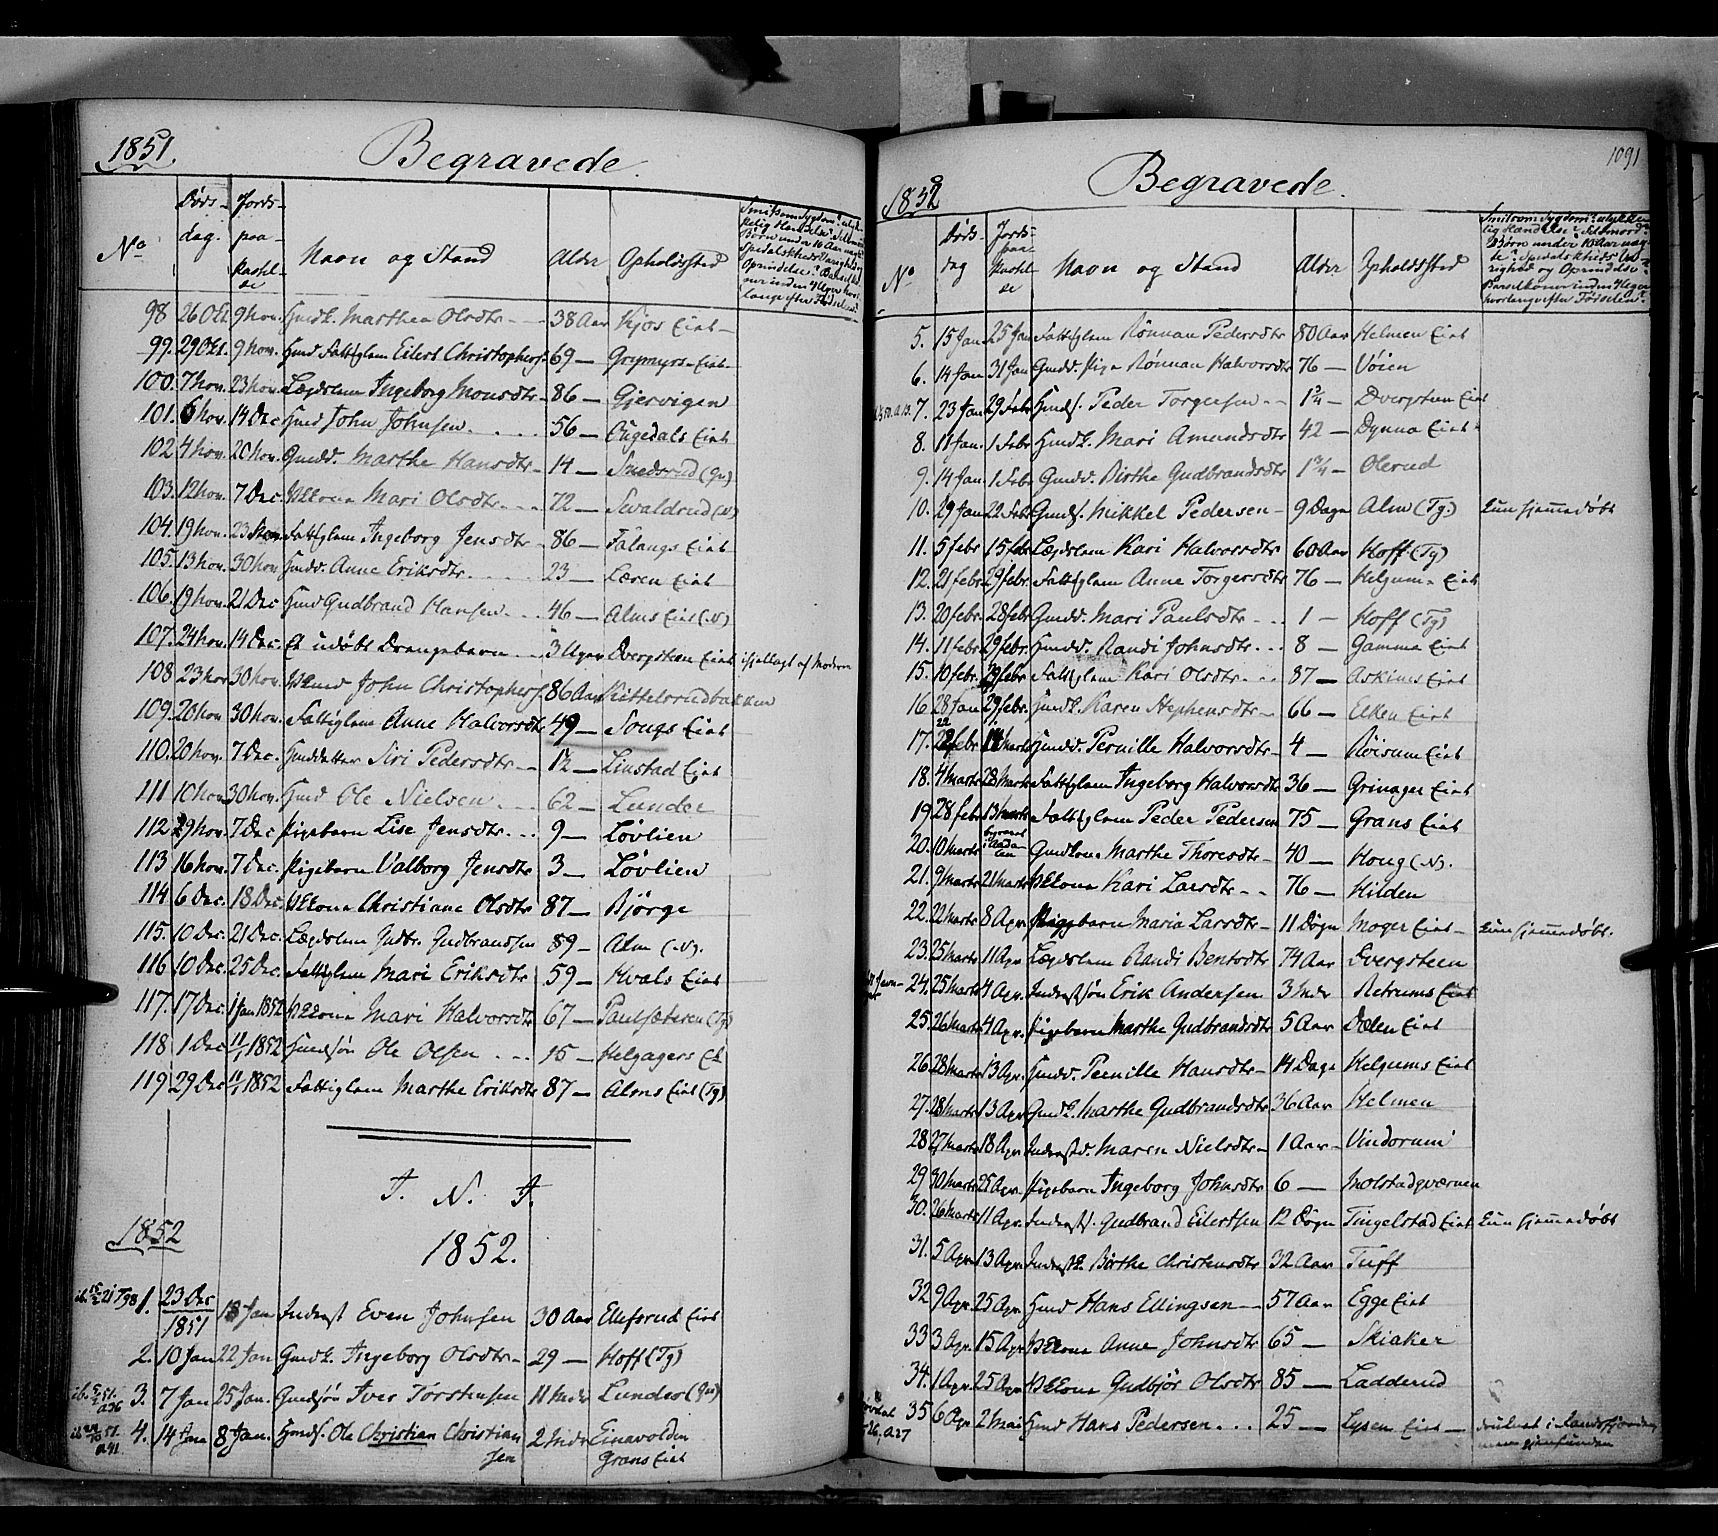 1851.
Begravede.
No
Døds-
dag.
Jords-
paa-
kastel-
se
Navn og Stand
Alder
Opholdssted
Smitsom Sygdom? ulyk-
kelig Hændelse? Selvmord?
Børn under 10 Aar vac?
98 26 Oct 9 Nov. Marthea Olsdtr 38 Aar Kjos Eiet
99. 29 Oct. 9 Nov. Hmd Fattiglem Eilert Christophers. 69 — Grymyrs Eiet
100. 7 Nov. 23 Nov. Lægdslem Ingeborg Monsdtr 86 — Gjervigen
101. 6 Nov. 14 Dec Hmd John Johnsen. 56 — Eiet
102 4 Nov. 20 Nov. Gmdd. Marthe Hansdtr 14 — Smedsrud (Gr)
103. 12 Nov. 7 Dec. Mari Olsdtr 72 — Svaldrud (N)
104. 19 Nov. 23 Nov. Fattiglem Ingeborg Jensdtr 86 — Falangs Eiet
105. 13 Nov. 30 Nov Hmdd. Anne Eriksdtr. 23 — Læren Eiet
106. 19 Nov. 21 Dec Hmd Gudbrand Hansen 46 — Alms Eiet (N)
107. 24 Nov. 14 Dec. Et udøbt Drengebarn 3 Uger Dvergsten Eiet ihjellagt af Modern
108 23 Nov 30 Nov. John Christophers. 86 Aar Kittelsrudbakken
109. 20 Nov 30 Nov. Fattiglem Anne Halvorsdtr 49 — Sougs Eiet
110. 20 Nov. 7 Dec. Hmddatter Siri Pedersdtr 12 — Linstad Eiet
111 10 Nov 30 Nov. Hmd Ole Nielsen 62 — Lunder
112 29 Nov. 7 Dec Pigebarn Lise Jensdtr 9 — Løvlien
113 16 Nov. 7 Dec. Pigebarn Valborg Jensdtr 3 — Løvlien
114 6 Dec. 18 Dec. Christiane Olsdtr 87 — Bjørge
115. 10 Dec. 21 Dec. Lægdslem Gudbr. Gudbrandsen 89 — Alm (N).
116 10 Dec. 25 Dec. Fattiglem Mari Eriksdtr 59 — Hvals Eiet
117. 17 Dec. 1 Jan 1852 Mari Halvorsdtr 67 — Paulsæteren (Tg)
118 1 Dec 11/1 1852 Hmdsøn Ole Olsen 15 — Helgagers Et
119 29 Dec 11/1 1852 Fattiglem Marthe Eriksdtr 87 — Alms Eiet (Tg)
J. N. J.
1852
1852.
1. 23 Dec 1851 18 Jan Inderst Even Johnsen 30 Aar Elifsrud Eiet
2. 10 Jan 22 Jan Gmdk. Ingeborg Olsdtr 29 — Hoff (Tg)
3. 7 Jan 25 Jan. Gmdsøn Iver Torstensen 11 Mdr Lunder (Gr)
4. 14 Jan 8 Jan. Hmds. Ole Christian Christian
sen 2 Mdr Einavolden
Grans Eiet
1091
1852
Begravede.
No
Døds-
dag
Jords-
paa-
kastel-
se
Navn og Stand
Alder
Opholdssted
Smitsom Sygdom? ulykke-
lig Hændelse? Selvmord?
5. 15 Jan 25 Jan Fattiglem Rønnau Pedersdtr 80 Aar Helmen Eiet
6. 14 Jan 31 Jan Gmdd. Pige Rønnau Halvorsdtr 76 — Vøien
7. 23 Jan 29 Febr Hmds. Peder Torgersen 1 3/4 — Dvergsten Eiet
8. 11 Jan. 1 Febr Hmdk. Mari Amundsdtr 42 — Dynna Eiet
9. 14 Jan 1 Febr Gmdd. Birthe Gudbrandsdtr 1 3/4 — Olerud
10. 29 Jan 22 Febr Gmds. Mikkel Pedersen 9 Dage Alm (Tg.) kun hjemmedøbt
11. 5 Febr 15 Febr Lægdslem Kari Halvorsdtr 60 Aar Hoff (Tg)
12. 21 Febr. 29 Febr. Fattiglem Anne Torgersdtr 76 — Helgum. Eiet
13. 20 Febr. 28 Febr Gmdd. Mari Paulsdtr 1 — Hoff (Tg)
14. 11 Febr 29 Febr. Hmdd. Randi Johnsdtr 8 — Gamme Eiet
15. 10 Febr. 29 Febr Fattiglem Kari Olsdtr 87 — Askims Eiet
16 28 Jan 29 Febr. Hmdk. Karen Stephensdtr 66 — Elken Eiet
17. 22 Febr. 14 Marts Hmdd. Pernille Halvorsdtr 4 — Røisum Eiet
18. 4 Marts 28 Marts Fattiglem Ingeborg Halvorsdtr 36 — Grinager Eiet
19 28 Febr 13 Marts Fattiglem Peder Pedersen 75 — Grans Eiet
20. 10 Marts begravet Marthe Thoresdtr 40 — Houg (N).
21. 9 Marts 21 Marts Kari Larsdtr 76 — Hilden
22. 22 Marts 8 Apr. Pigebarn Maria Larsdtr 11 Døgn Moger Eiet kun hjemmedøbt.
23. 25 Marts 11 Apr Lægdslem Randi Bentsdtr 74 Aar Dvergsteen
24. 25 Marts 4 Apr. Inderstsøn Erik Andersen 3 Mdr Retrums Eiet
25. 26 Marts 4 Apr. Pigebarn Marthe Gudbrandsdtr 5 Aar Dælen Eiet
26. 28 Marts 13 Apr. Hmdd. Pernille Hansdtr 14 Dage Helgums Eiet
27. 28 Marts 13 Apr. Gmdk. Marthe Gudbrandsdtr 36 Aar Helmen
28 27 Marts 18 Apr Inderstd. Maren Nielsdtr 1 Aar Vindorum
29 30 Marts 25 Apr. Pigebarn Ingeborg Johnsdtr 6 — Molstadqværnen
30. 26 Marts 11 Apr. Indersts. Gudbrand Eilertsen 12 Døgn Tingelstad Eiet kun hjemmedøbt
31. 5 Apr. 13 Apr. Inderstk. Birthe Christensdtr 32 Aar Tuff
32 9 Apr. 25 Apr. Hmd Hans Ellingsen 57 Aar Egge Eiet
33 3 Apr. 15 Apr. Anne Johnsdtr 65 — Skiaker
34. 1 Apr. 25 Apr. Gudbjør Olsdtr 85 — Ladderud
35 6 Apr. 2 Mai Hmd Hans Pedersen 25 — Lysen Eiet druknet i Randsfjorden
men gjenfunden